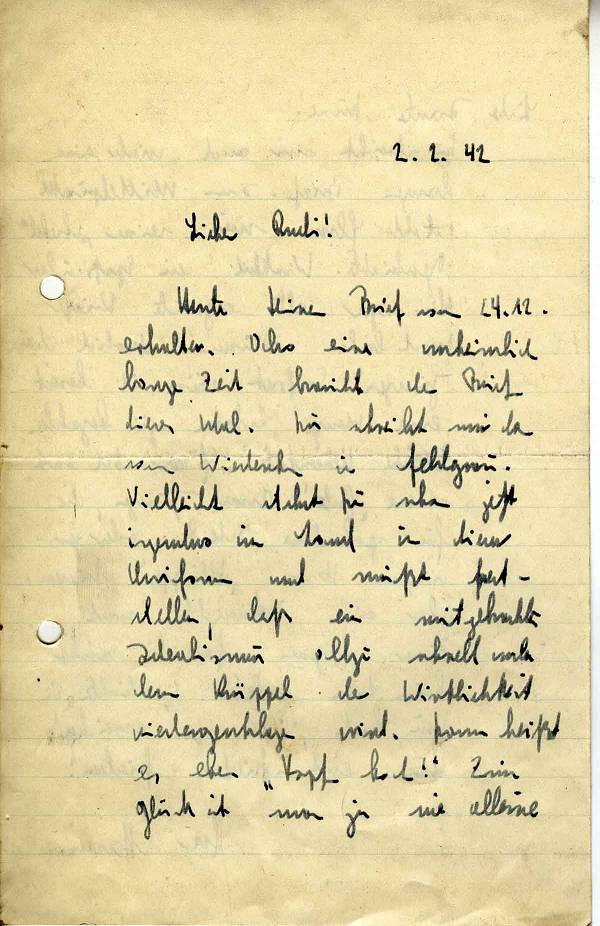 2. 2. 42
Lieber Rudi!
Heute Deinen Brief vom 24.12.
erhalten. Also eine unheimlich
lange Zeit braucht der Brief
dieses Mal. Du schreibst mir da
vom Wiedersehn in feldgrau.
Vielleicht stehst Du schon jetzt
irgendwo im Land in dieser
Uniform und mußt fest-
stellen, daß ein mitgebrachter
Idealismus allzu schnell von
dem Knüppel der Wirklichkeit
niedergeschlagen wird. Dann heißt
es eben „Kopf hoch!" Zum
Glück ist man ja nie alleine